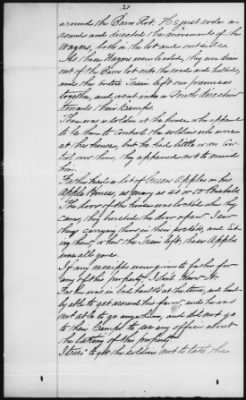 21
around the Barn Lot. He just rode a-
round and directed the movements of the
Wagons, both in the lot and outside.
As these Wagons were loaded, they were drawn
out of the Barn lot into the road and halted,
and the entire Train left the premises
together, and went in a North direction
towards their Camps.
There was a soldier at the house, who appeared
to be there to Control the soldiers who were
at the house, but he had little or no Con-
trol over them, they appeared not to mind
him.
Father had a lot of Green Apples in his
Apple House, as many as 40 or 50 Bushels
The door of the house was locked when they
came, they bursted the door open. I saw
them carrying them in their pockets, and Eat-
ing them, & when the Train left, these Apples
was all gone.
If any receipts were given to father for
any of this property I don't know it.
Father was in bad health at the time, and hard-
ly able to get around his farm, and he was
not able to go any where, and did not go
to their Camps to see any officer about
the taking of this property.
I tried to get the soldiers not to take the